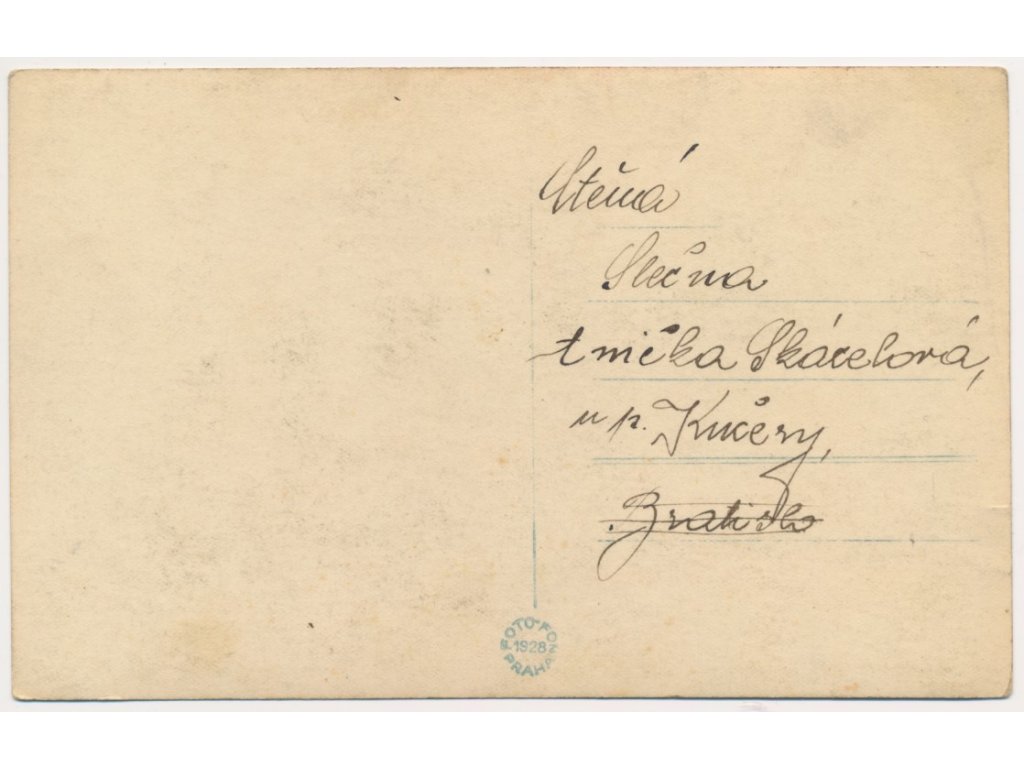 Ctěná
Slečna
Anička Skácelová,
u p. Kučery,
Bratislo
FOTO-FON
1928
PRAHA